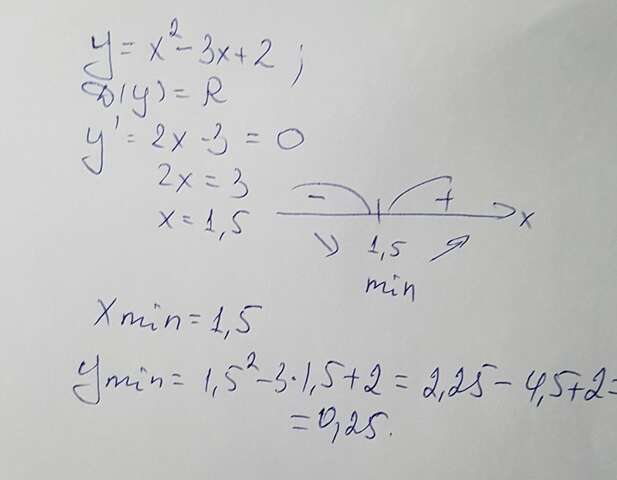 y = x² - 3x + 2 ;
D(y) = R
y' = 2x - 3 = 0
2x = 3
x = 1,5
- +
x
1,5
min
x min = 1,5
y min = 1,5² - 3·1,5 + 2 = 2,25 - 4,5 + 2 =
= 0,25.